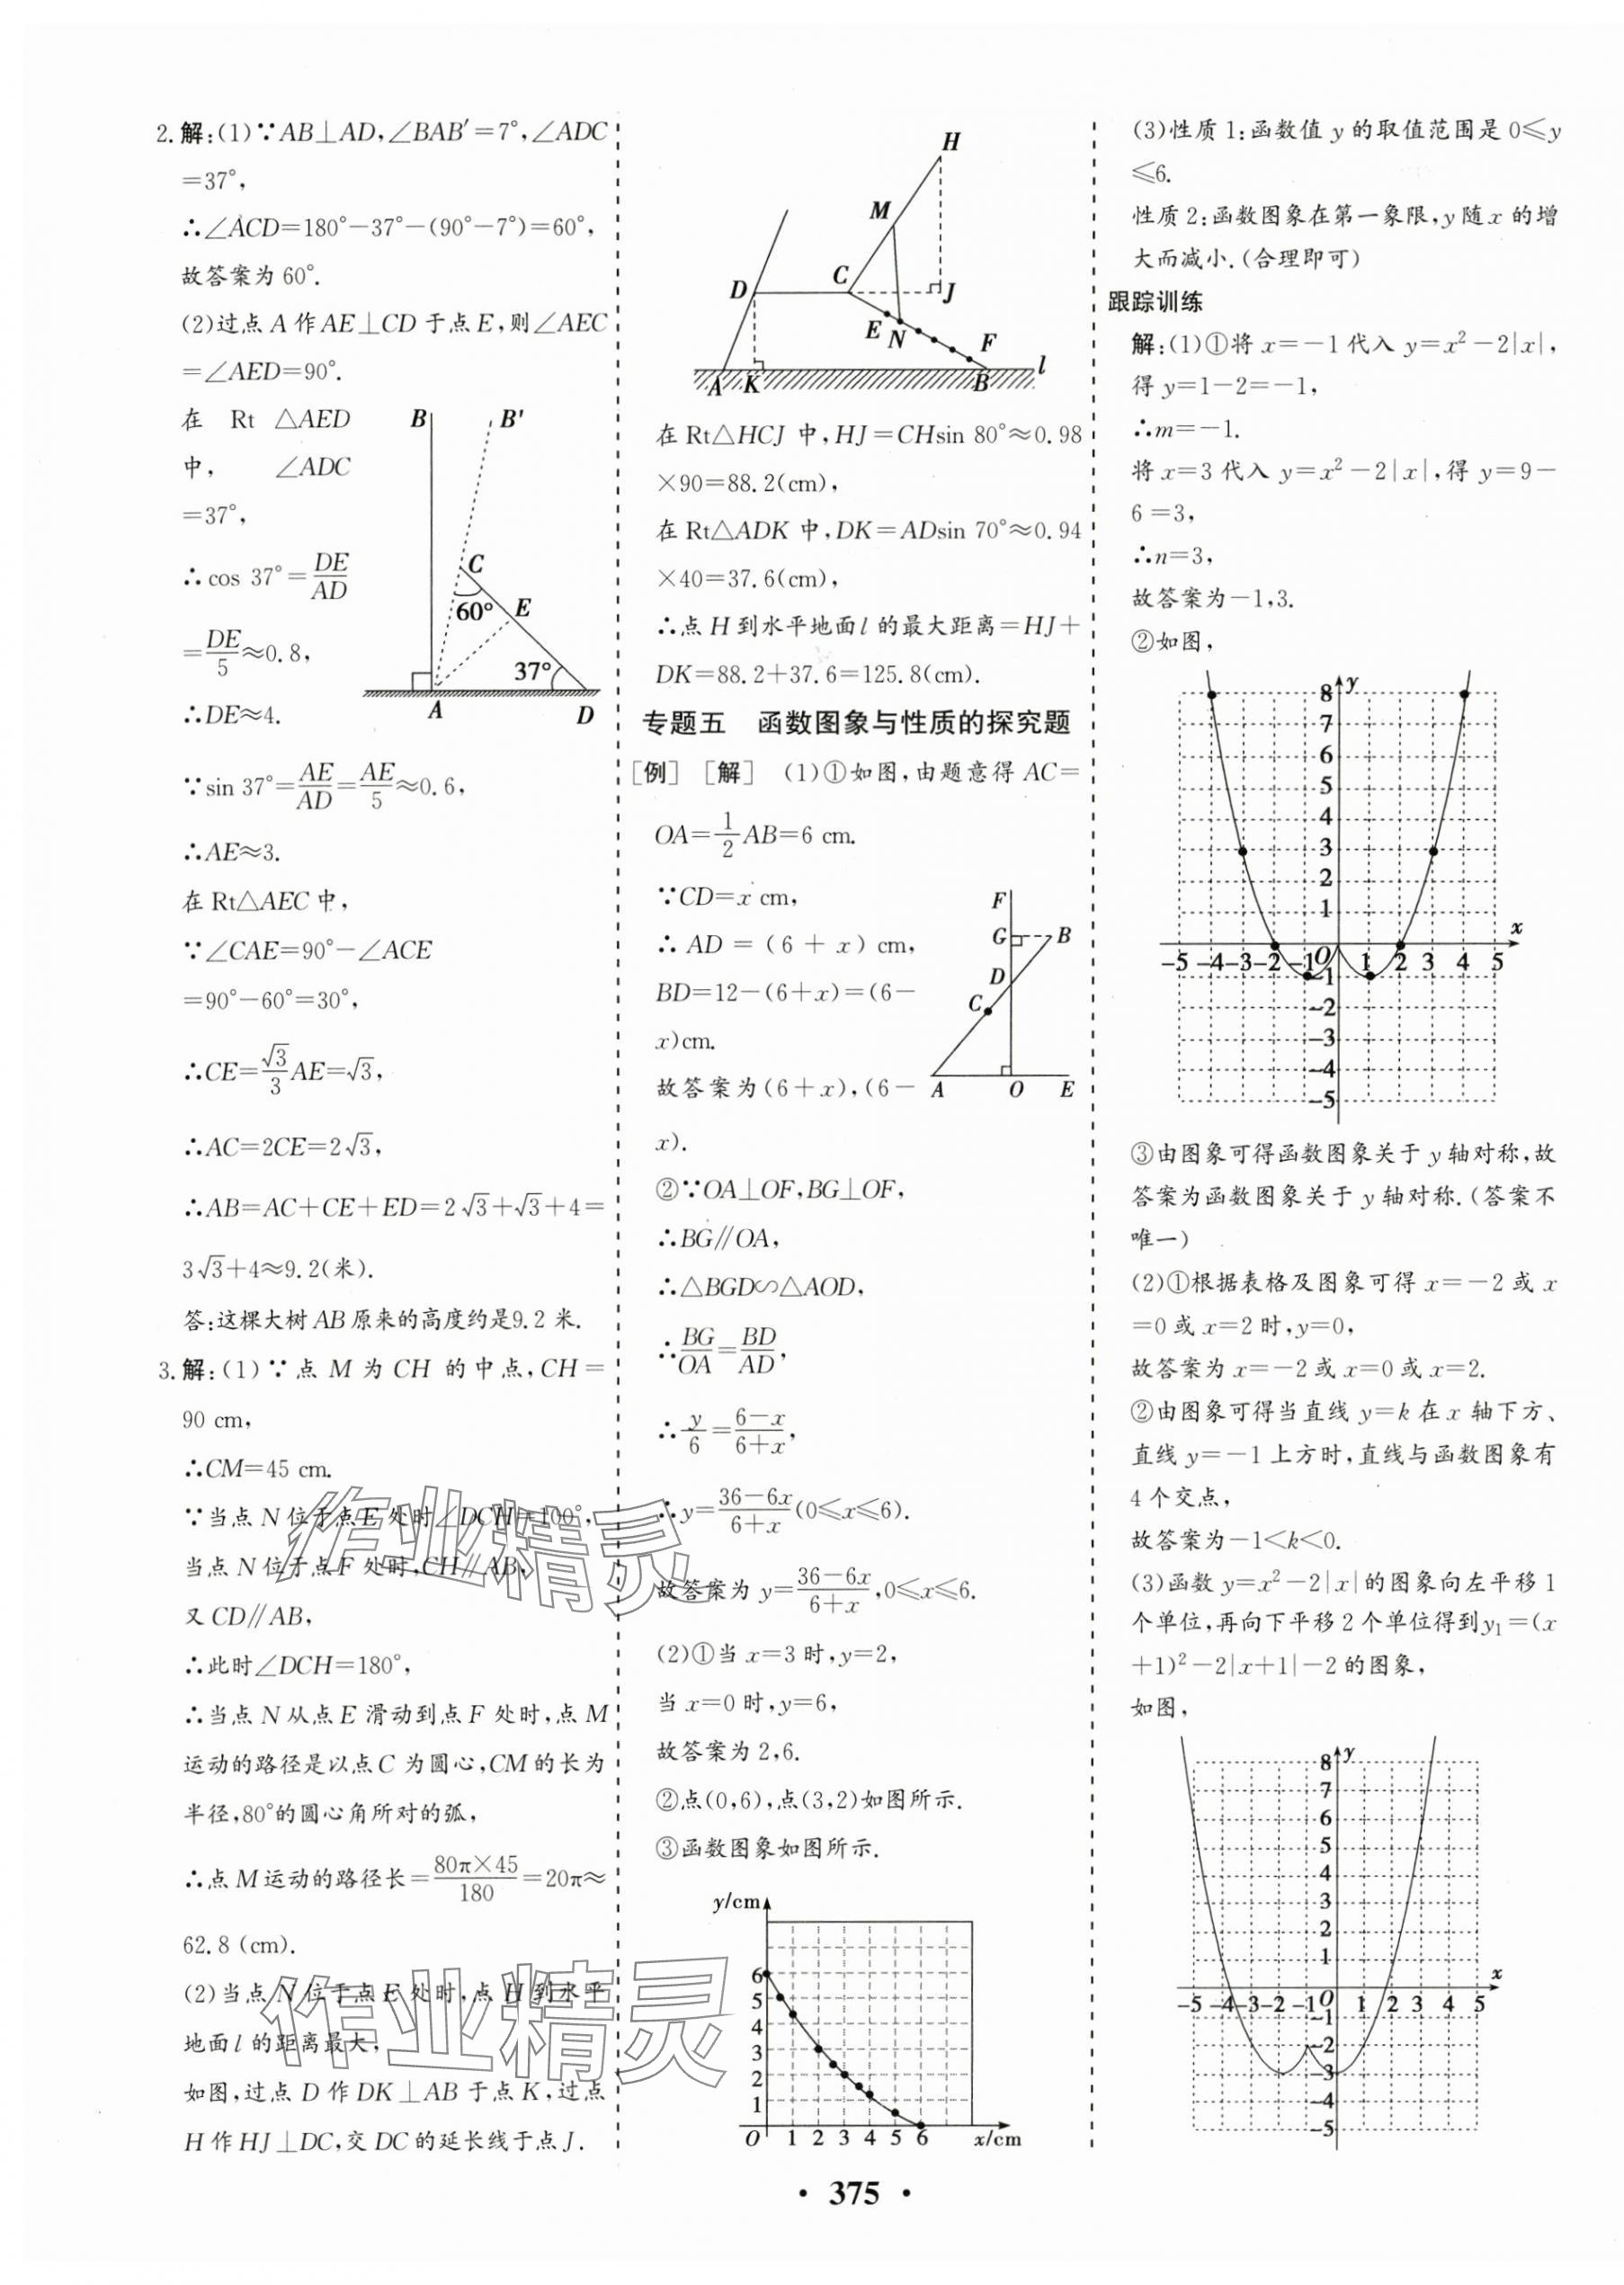 2.解:(1)∵AB⊥AD,∠BAB′=7°,∠ADC
=37°,
∴∠ACD=180°-37°-(90°-7°)=60°,
故答案为 60°.
(2)过点 A 作 AE⊥CD 于点 E,则∠AEC
=∠AED=90°.
在 Rt △AED
中, ∠ADC
=37°,
∴cos 37°=DE/AD
=DE/5≈0.8,
∴DE≈4.
B
B′
C
60°
E
37°
A
D
∵sin 37°=AE/AD=AE/5≈0.6,
∴AE≈3.
在 Rt△AEC 中,
∵∠CAE=90°-∠ACE
=90°-60°=30°,
∴CE=√3/3 AE=√3,
∴AC=2CE=2√3,
∴AB=AC+CE+ED=2√3+√3+4=
3√3+4≈9.2(米).
答:这棵大树 AB 原来的高度约是9.2 米.
3.解:(1)∵点 M 为 CH 的中点,CH=
90 cm,
∴CM=45 cm.
∵当点 N 位于点 E 处时∠DCH=100°,
当点 N 位于点 F 处时,CH∥AB,
又 CD∥AB,
∴此时∠DCH=180°,
∴当点 N 从点 E 滑动到点 F 处时,点 M
运动的路径是以点 C 为圆心,CM 的长为
半径,80°的圆心角所对的弧,
∴点 M 运动的路径长=80π×45/180=20π≈
62.8 (cm).
(2)当点 N 位于点 E 处时,点 H 到水平
地面 l 的距离最大,
如图,过点 D 作 DK⊥AB 于点 K,过点
H 作 HJ⊥DC,交 DC 的延长线于点 J.
H
M
C
D
J
E
N
F
A
K
B
l
在 Rt△HCJ 中,HJ=CHsin 80°≈0.98
×90=88.2(cm),
在 Rt△ADK 中,DK=ADsin 70°≈0.94
×40=37.6(cm),
∴点 H 到水平地面 l 的最大距离=HJ+
DK=88.2+37.6=125.8(cm).
专题五 函数图象与性质的探究题
[例] [解] (1)①如图,由题意得 AC=
OA=1/2 AB=6 cm.
∵CD=x cm,
∴ AD =(6+x) cm,
BD=12-(6+x)=(6-
x)cm.
故答案为(6+x),(6-
x).
F
G
B
D
C
A
O
E
②∵OA⊥OF,BG⊥OF,
∴BG∥OA,
∴△BGD∽△AOD,
∴BG/OA=BD/AD,
∴y/6=(6-x)/(6+x),
∴y=(36-6x)/(6+x)(0≤x≤6).
故答案为 y=(36-6x)/(6+x),0≤x≤6.
(2)①当 x=3 时,y=2,
当 x=0 时,y=6,
故答案为 2,6.
②点(0,6),点(3,2)如图所示.
③函数图象如图所示.
y/cm
6
5
4
3
2
1
O 1 2 3 4 5 6 x/cm
(3)性质 1:函数值 y 的取值范围是 0≤y
≤6.
性质 2:函数图象在第一象限,y 随 x 的增
大而减小.(合理即可)
跟踪训练
解:(1)①将 x=-1 代入 y=x²-2|x|,
得 y=1-2=-1,
∴m=-1.
将 x=3 代入 y=x²-2|x|,得 y=9-
6=3,
∴n=3,
故答案为-1,3.
②如图,
y
8
7
6
5
4
3
2
1
x
-5 -4 -3 -2 -1 O 1 2 3 4 5
-1
-2
-3
-4
-5
③由图象可得函数图象关于 y 轴对称,故
答案为函数图象关于 y 轴对称.(答案不
唯一)
(2)①根据表格及图象可得 x=-2 或 x
=0 或 x=2 时,y=0,
故答案为 x=-2 或 x=0 或 x=2.
②由图象可得当直线 y=k 在 x 轴下方、
直线 y=-1 上方时,直线与函数图象有
4 个交点,
故答案为-1<k<0.
(3)函数 y=x²-2|x|的图象向左平移 1
个单位,再向下平移 2 个单位得到y₁=(x
+1)²-2|x+1|-2 的图象,
如图,
y
8
7
6
5
4
3
2
1
x
-5 -4 -3 -2 -1 O 1 2 3 4 5
-1
-2
-3
-4
-5
作业精灵
作业精灵
• 375 •